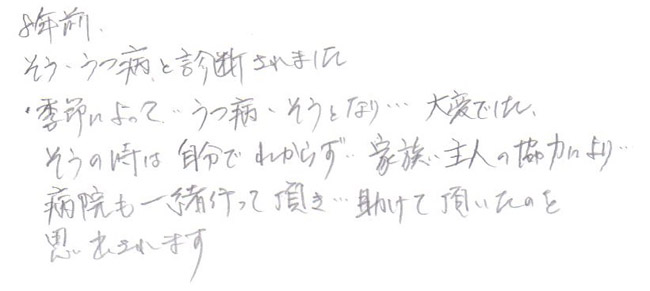 8年前.
そう・うつ病.と診断されました
・季節によって‥うつ病、そうとなり… 大変でした、
そうの時は自分でわからず‥家族、主人の協力により‥
病院も一緒行って頂き…助けて頂いたのを
思い出されます